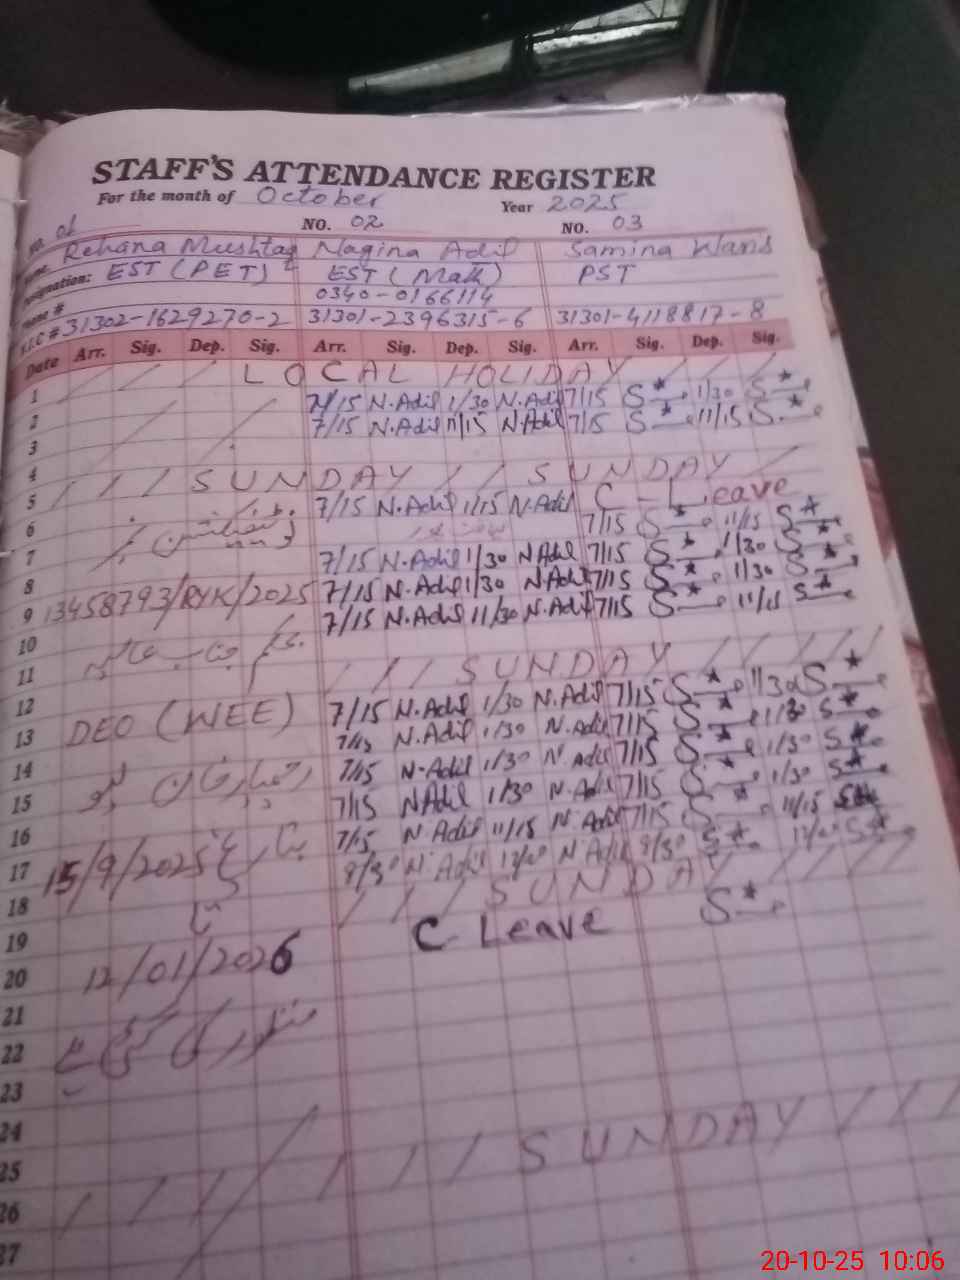 STAFF'S ATTENDANCE REGISTER
For the month of October Year 2025
No. 01 NO. 02 NO. 03
Name: Rehana Mushtaq Nagina Adil Samina Waris
Designation: EST (PET) EST (Math) PST
Phone # 0340-0166114
N.I.C # 31302-1629270-2 31301-2396315-6 31301-4118817-8
Date Arr. Sig. Dep. Sig. Arr. Sig. Dep. Sig. Arr. Sig. Dep. Sig.
1 / / / / L O C A L HOLIDAY / / / /
2 7/15 N.Adil 1/30 N.Adil 7/15 S 1/30 S
3 7/15 N.Adil 11/15 N.Adil 7/15 S 11/15 S
4
5 / / / S U N D A Y / / S U N D A Y /
6 7/15 N.Adil 1/15 N.Adil C - Leave
7 7/15 S 11/15 S
8 7/15 N.Adil 1/30 N.Adil 7/15 S 1/30 S
9 13458793/RYK/2025 7/15 N.Adil 1/30 N.Adil 7/15 S 1/30 S
10 7/15 N.Adil 11/30 N.Adil 7/15 S 11/15 S
11
12 / / / S U N D A Y / / / / /
13 DEO (WEE) 7/15 N.Adil 1/30 N.Adil 7/15 S 1/30 S
14 7/15 N.Adil 1/30 N.Adil 7/15 S 1/30 S
15 7/15 N.Adil 1/30 N.Adil 7/15 S 1/30 S
16 7/15 N.Adil 1/30 N.Adil 7/15 S 1/30 S
17 15/9/2025 7/15 N.Adil 11/15 N.Adil 7/15 S 11/15 S
18 8/30 N.Adil 12/00 N.Adil 8/30 S 12/00 S
19 تا / / / S U N D A Y / / / /
20 12/01/2026 C Leave S
21
22 منظور کی گئی ہے
23
24
25
26 / / / / / / / S U N D A Y / / /
27
20-10-25 10:06